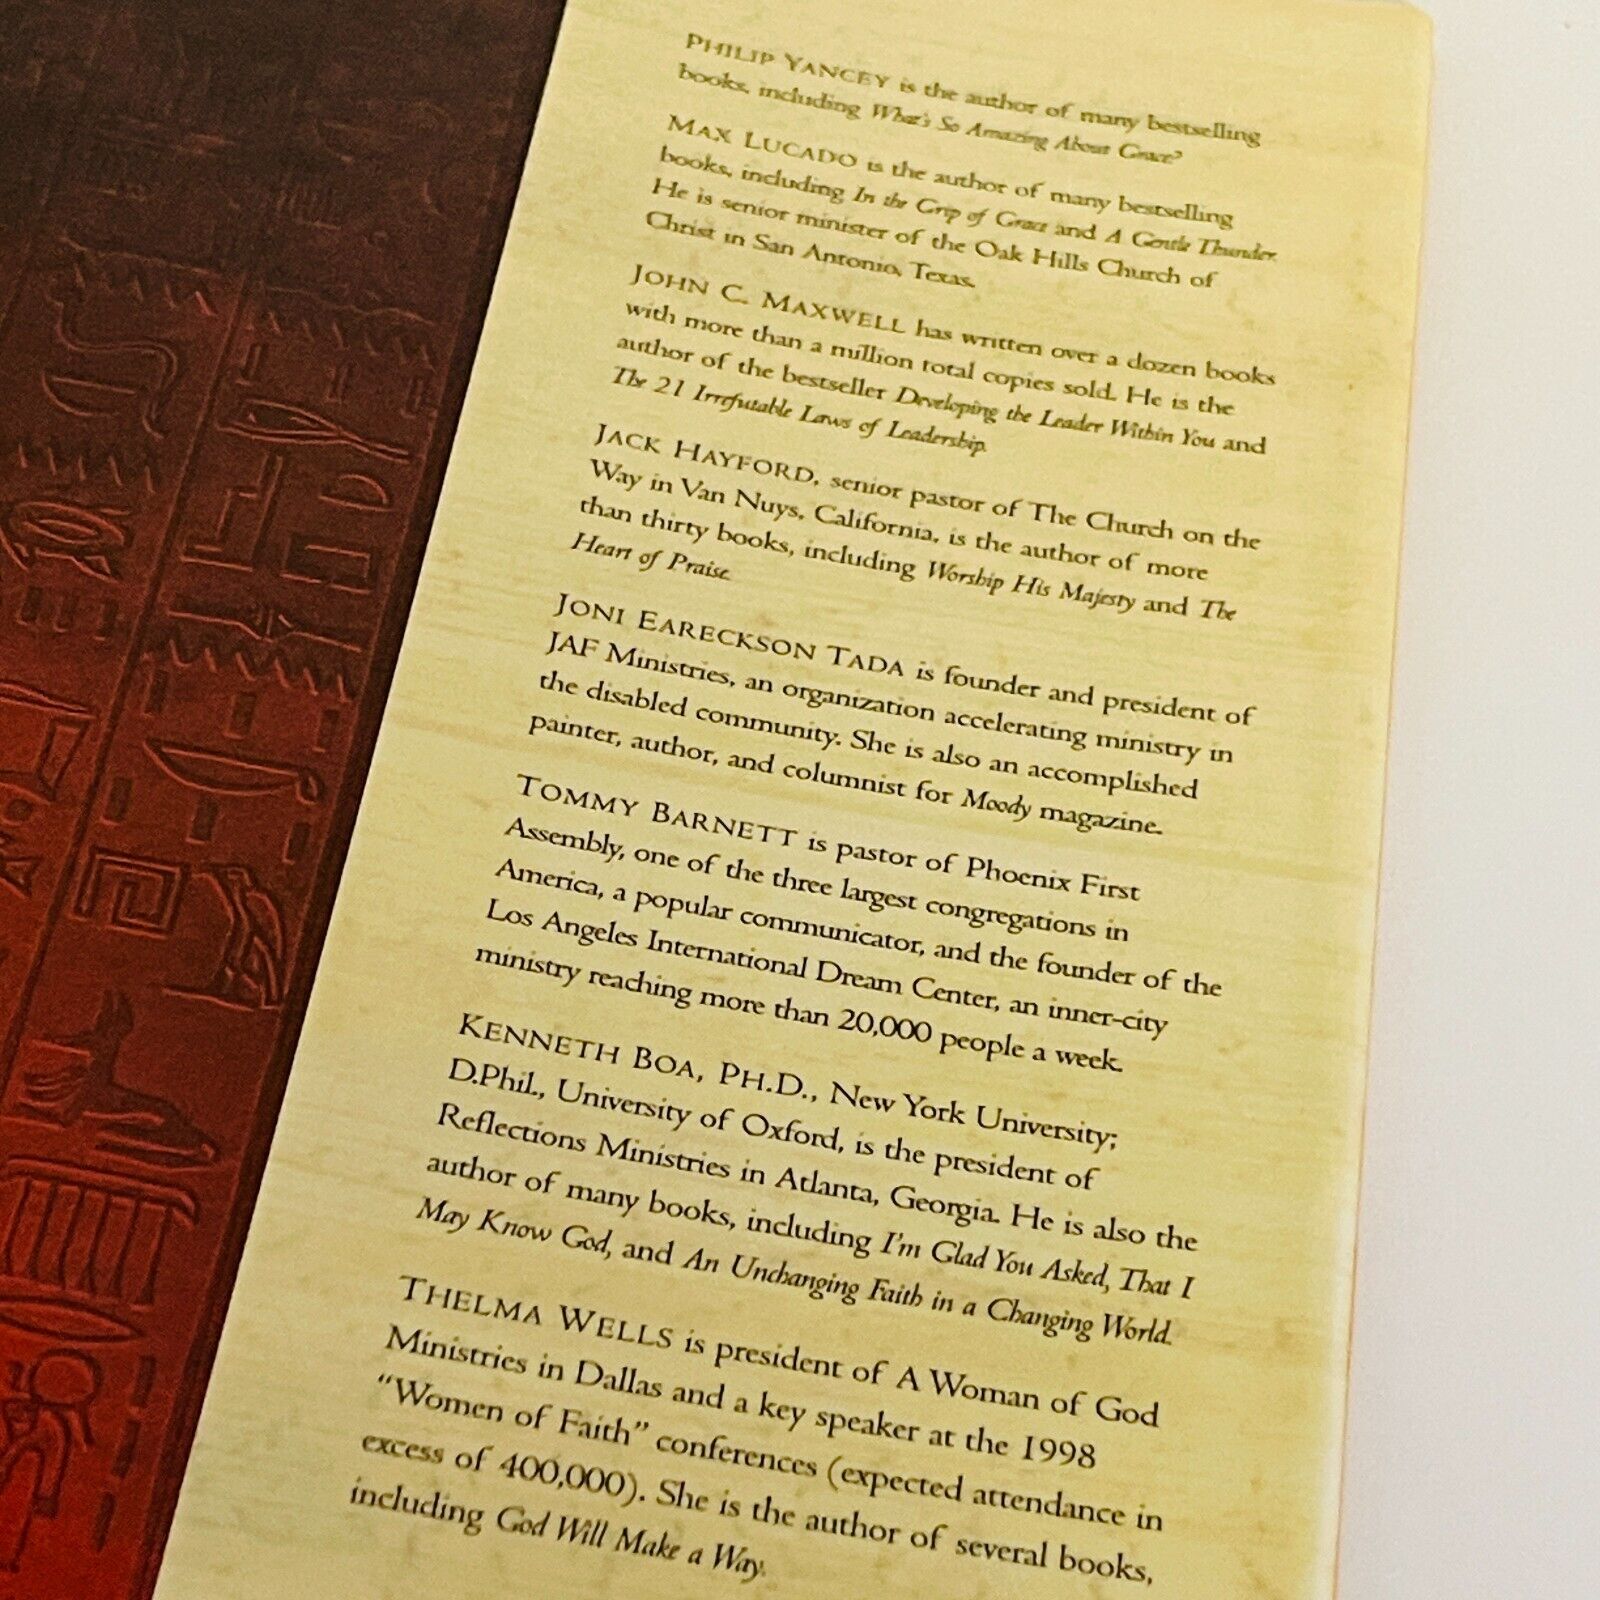 PHILIP YANCEY is the author of many bestselling
books, including What's So Amazing About Grace?
MAX LUCADO is the author of many bestselling
books, including In the Grip of Grace and A Gentle Thunder.
He is senior minister of the Oak Hills Church of
Christ in San Antonio, Texas.
JOHN C. MAXWELL has written over a dozen books
with more than a million total copies sold. He is the
author of the bestseller Developing the Leader Within You and
The 21 Irrefutable Laws of Leadership.
JACK HAYFORD, senior pastor of The Church on the
Way in Van Nuys, California, is the author of more
than thirty books, including Worship His Majesty and The
Heart of Praise.
JONI EARECKSON TADA is founder and president of
JAF Ministries, an organization accelerating ministry in
the disabled community. She is also an accomplished
painter, author, and columnist for Moody magazine.
TOMMY BARNETT is pastor of Phoenix First
Assembly, one of the three largest congregations in
America, a popular communicator, and the founder of the
Los Angeles International Dream Center, an inner-city
ministry reaching more than 20,000 people a week.
KENNETH BOA, PH.D., New York University;
D.Phil., University of Oxford, is the president of
Reflections Ministries in Atlanta, Georgia. He is also the
author of many books, including I'm Glad You Asked, That I
May Know God, and An Unchanging Faith in a Changing World.
THELMA WELLS is president of A Woman of God
Ministries in Dallas and a key speaker at the 1998
"Women of Faith" conferences (expected attendance in
excess of 400,000). She is the author of several books,
including God Will Make a Way.